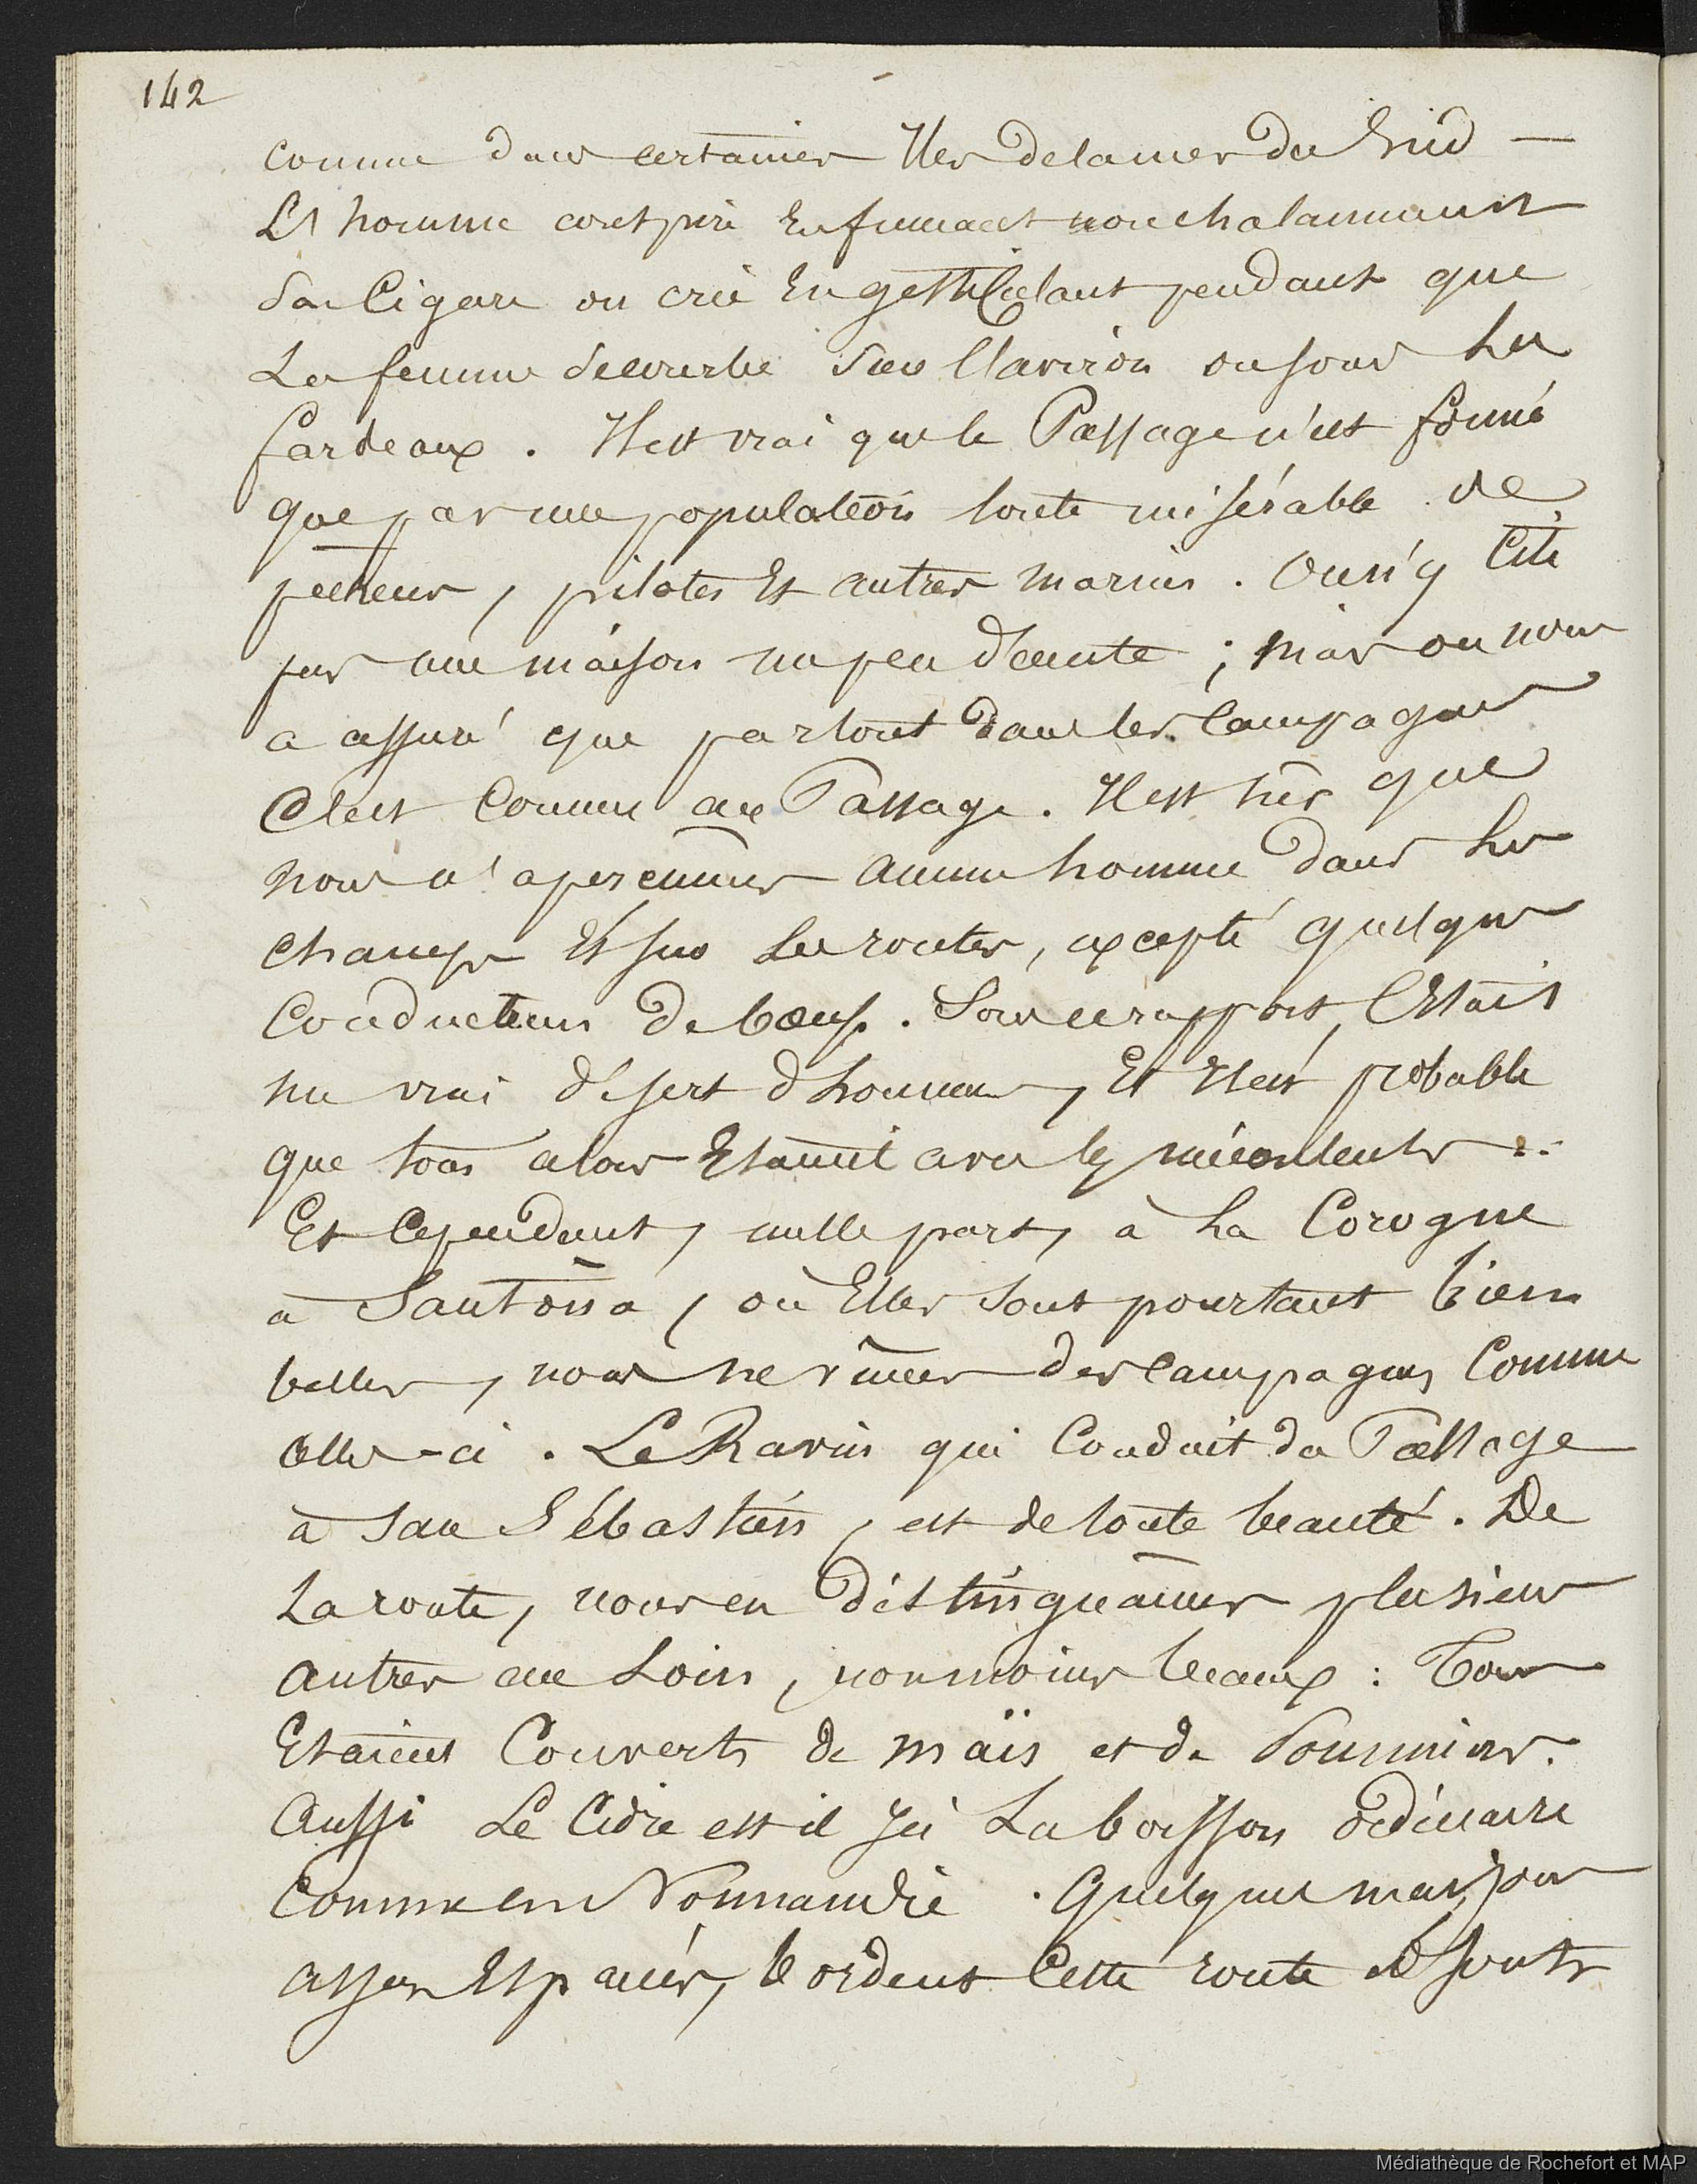 142
comme dans certaines Iles de la mer du Sud —
L'homme conspire En fumant nonchalamment
Sa Cigare ou crie En gesticulant pendant que
La femme se courbe sous l'aviron ou sous Les
fardeaux. Il est vrai que le Passage n'est formé
que par une population toute misérable de
pecheurs, pilotes Et autres marins. On n'y Cite
pas une maison un peu décente ; mais on nous
a assuré que partout dans les Campagnes
C'est Comme au Passage. Il est sûr que
nous n'aperçumes aucun homme dans Les
champs Et sur Les routes, excepté quelques
Conducteurs de bœufs. Sous ce rapport, C'Etait
un vrai désert d'hommes, Et Il est probable
que tous alors Etaient avec les mécontents ..
Et Cependant, nulle part, à La Corogne
à Santona, où Elles sont pourtant bien
belles, nous ne vîmes des Campagnes Comme
celles-ci. Le Ravin qui Conduit du Passage
à San Sébastien, est de toute beauté. De
La route, nous en distinguâmes plusieurs
autres au Loin, non moins beaux : Tous
Etaient Couverts de maïs et de Pommiers.
Aussi Le Cidre est il Ici La boisson ordinaire
Comme en Normandie. Quelques maisons
assez Espacées, bordent Cette route